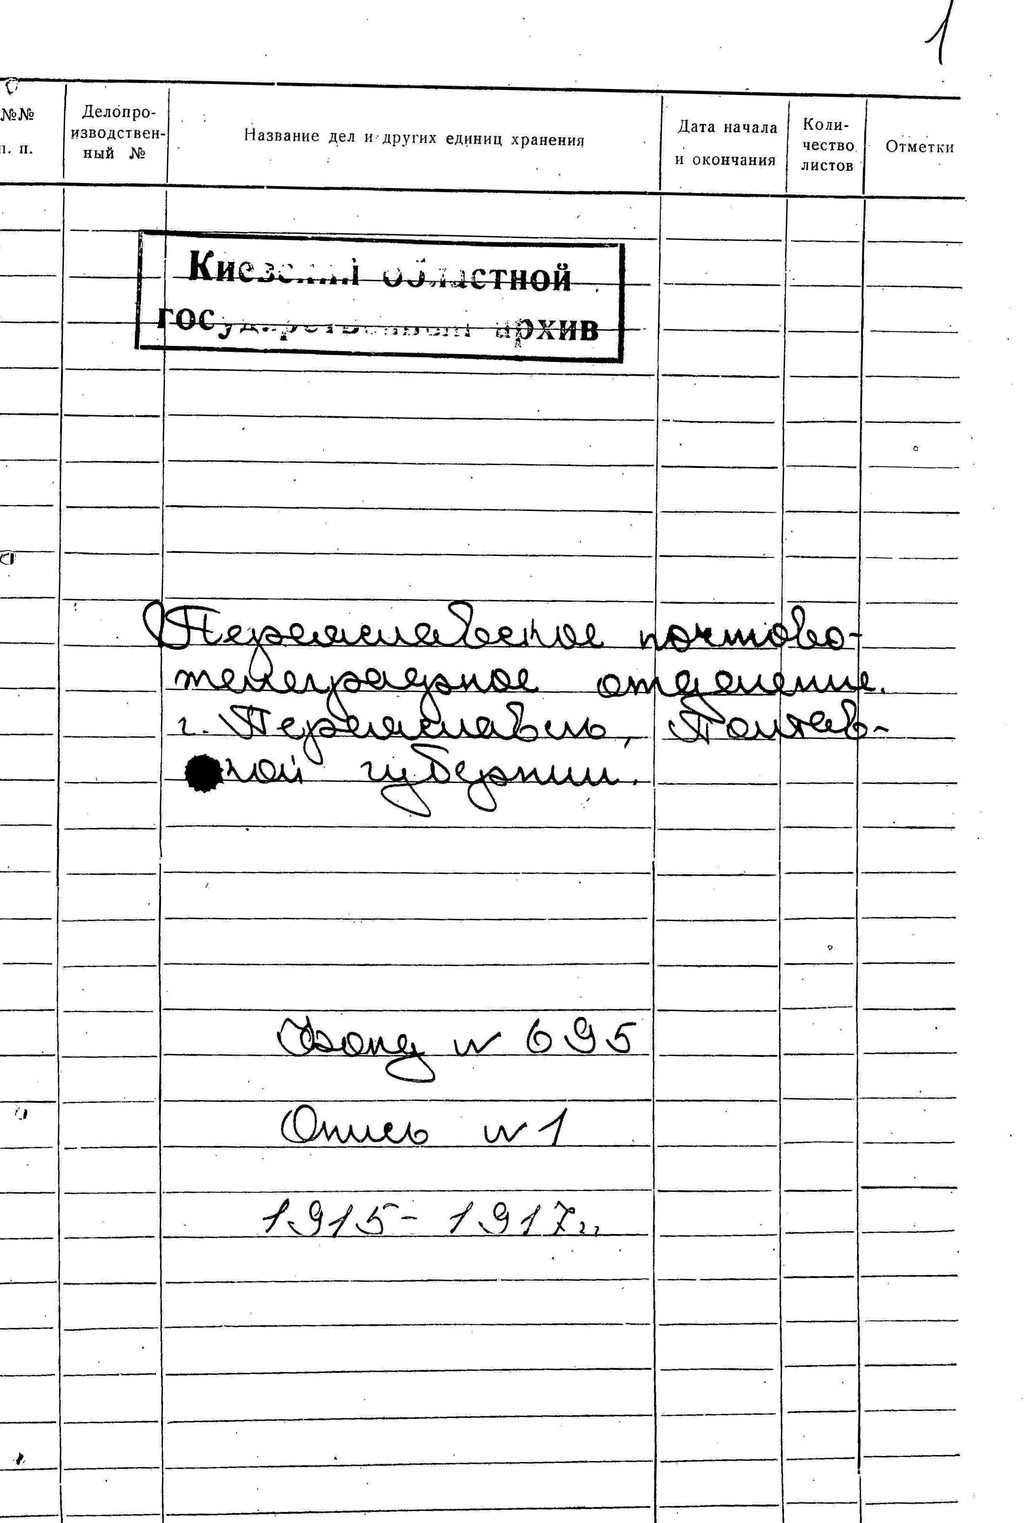 1
№№ п. п.
Делопро-
изводствен-
ный №
Название дел и других единиц хранения
Дата начала
и окончания
Коли-
чество
листов
Отметки
Киевский областной
государственный архив
Переяславское почтово-
телеграфное отделение.
г. Переяславль, Полтав-
кой губернии.
Фонд № 695
Опись № 1
1915-1917гг.